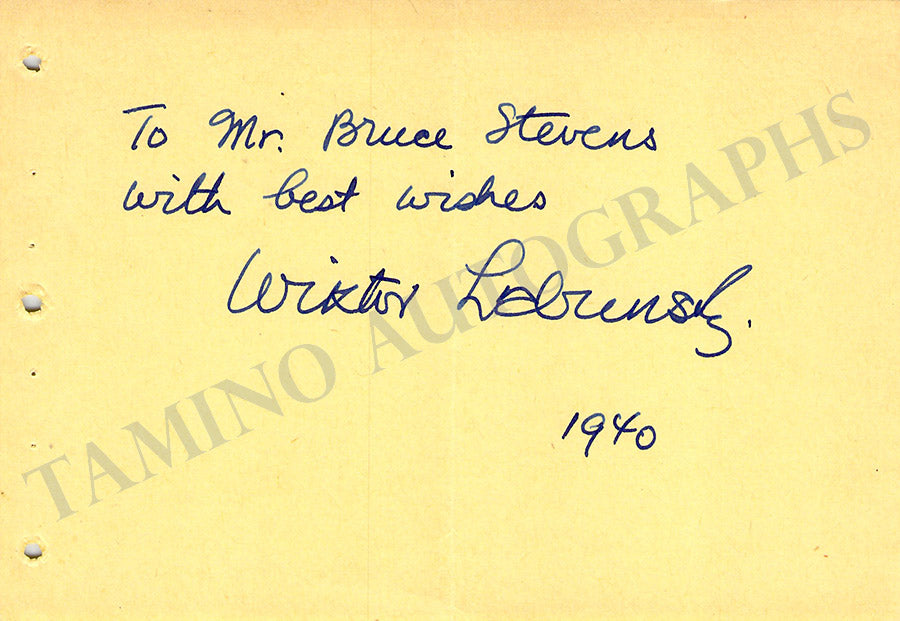 To Mr. Bruce Stevens
with best wishes
Wiktor Labunsky.
1940
TAMINO AUTOGRAPHS